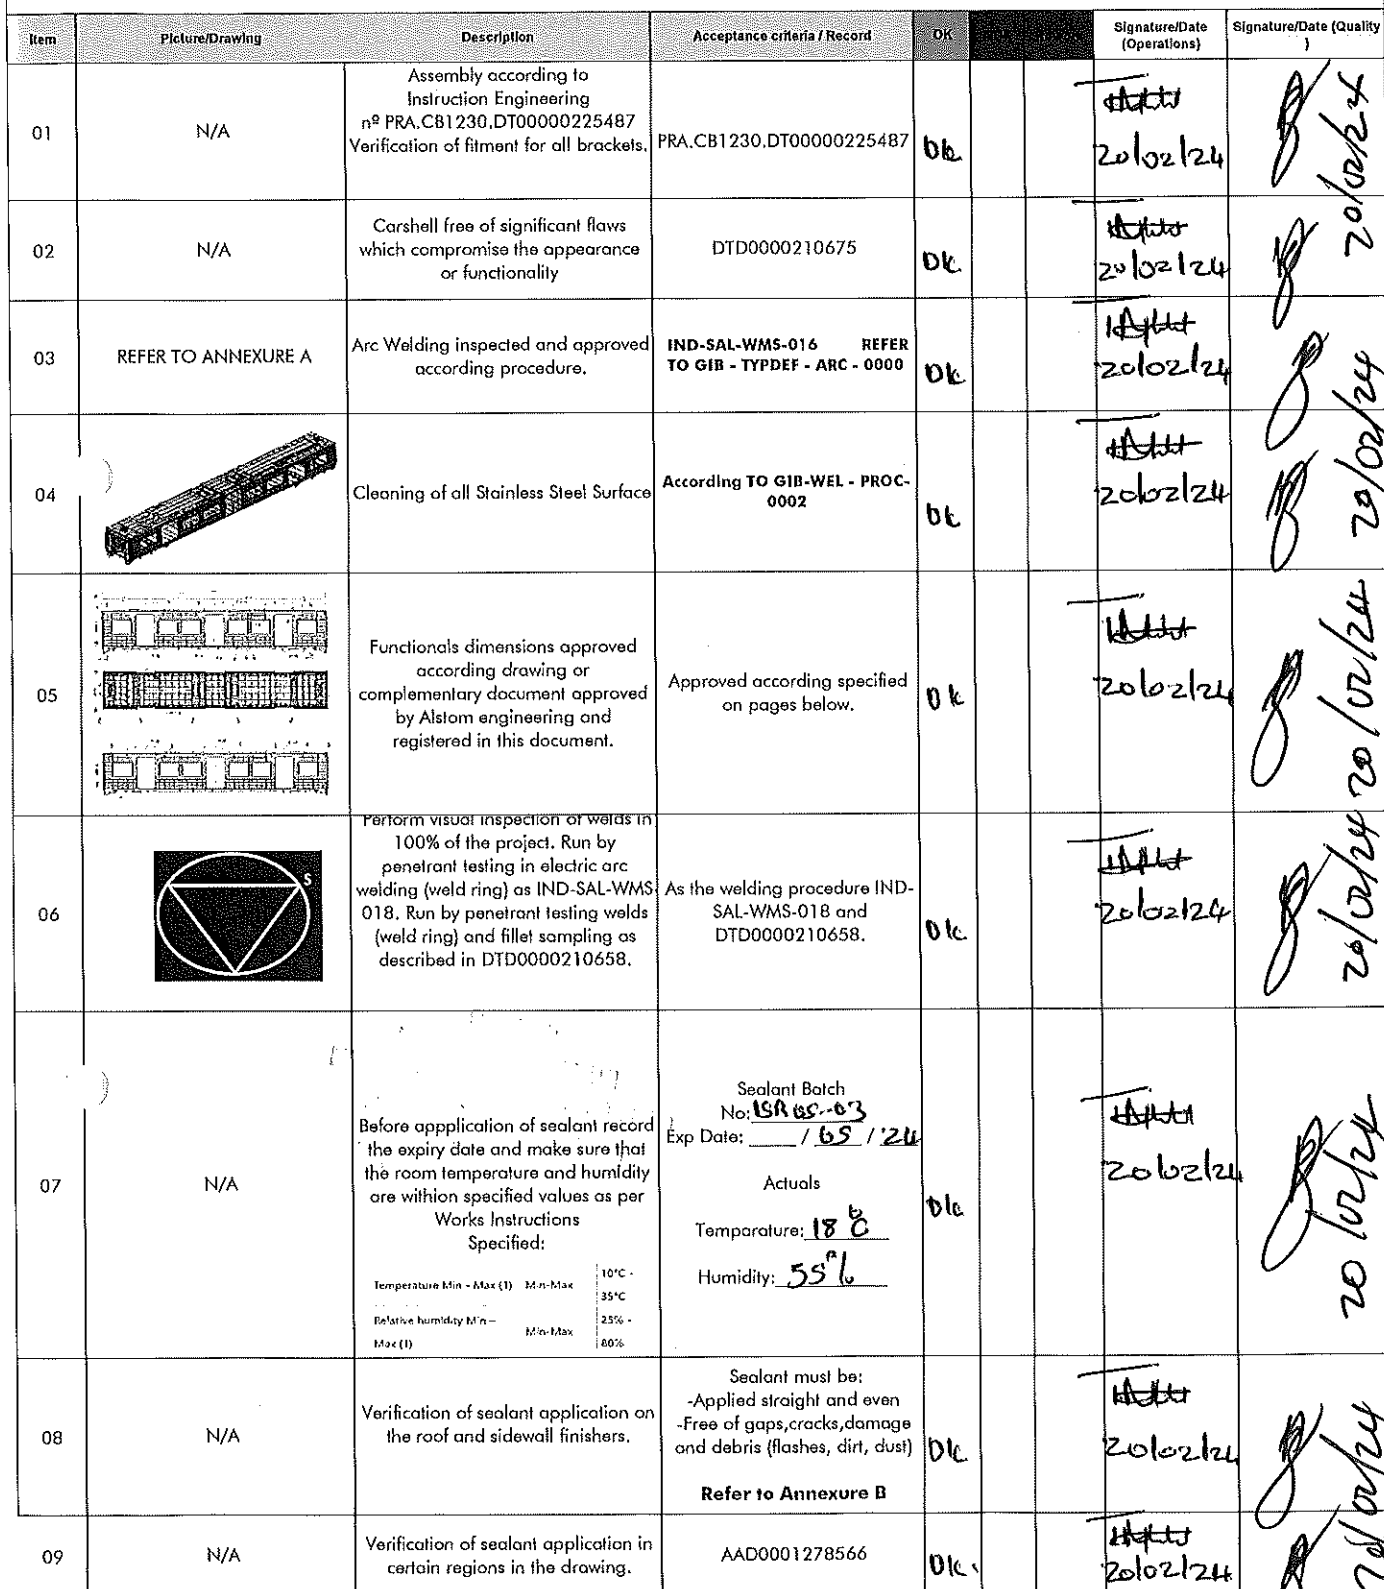 Item Picture/Drawing Description Acceptance criteria / Record OK Signature/Date (Operations) Signature/Date (Quality )
01
N/A
Assembly according to
Instruction Engineering
nº PRA.CB1230.DT00000225487
Verification of fitment for all brackets.
PRA.CB1230.DT00000225487
Ok
20/02/24
20/02/24
02
N/A
Carshell free of significant flaws
which compromise the appearance
or functionality
DTD0000210675
Ok
20/02/24
03
REFER TO ANNEXURE A
Arc Welding inspected and approved
according procedure.
IND-SAL-WMS-016 REFER
TO GIB - TYPDEF - ARC - 0000
Ok
20/02/24
20/02/24
04
Cleaning of all Stainless Steel Surface
According TO GIB-WEL - PROC-
0002
Ok
20/02/24
05
Functionals dimensions approved
according drawing or
complementary document approved
by Alstom engineering and
registered in this document.
Approved according specified
on pages below.
Ok
20/02/24
20/02/24
06
S
Perform visual inspection of welds in
100% of the project. Run by
penetrant testing in electric arc
welding (weld ring) as IND-SAL-WMS
018. Run by penetrant testing welds
(weld ring) and fillet sampling as
described in DTD0000210658.
As the welding procedure IND-
SAL-WMS-018 and
DTD0000210658.
Ok
20/02/24
20/02/24
07
N/A
Before appplication of sealant record
the expiry date and make sure that
the room temperature and humidity
are withion specified values as per
Works Instructions
Specified:
Temperature Min - Max (1) Min-Max 10°C -
35°C
Relative humidity Min –
Max (1) Min-Max 25% -
80%
Sealant Batch
No:
Exp Date: ____ / 05 / 24
Actuals
Temparature: 18 °C
Humidity: 55%
Ok
20/02/24
20/02/24
08
N/A
Verification of sealant application on
the roof and sidewall finishers.
Sealant must be:
-Applied straight and even
-Free of gaps,cracks,damage
and debris (flashes, dirt, dust)
Refer to Annexure B
Ok
20/02/24
20/02/24
09
N/A
Verification of sealant application in
certain regions in the drawing.
AAD0001278566
Ok.
20/02/24